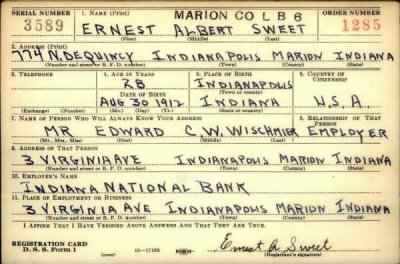 SERIAL NUMBER 1. NAME (Print) MARION CO L B 6 ORDER NUMBER
3589 ERNEST ALBERT SWEET 1285
(First) (Middle) (Last)
2. ADDRESS (Print)
774 N. DEQUINCY INDIANAPOLIS MARION INDIANA
(Number and street or R. F. D. number) (Town) (County) (State)
3. TELEPHONE 4. AGE IN YEARS 5. PLACE OF BIRTH 6. COUNTRY OF CITIZENSHIP
28 INDIANAPOLIS
DATE OF BIRTH (Town or county)
AUG 30 1912 INDIANA U.S.A.
(Exchange) (Number) (Mo.) (Day) (Yr.) (State or country)
7. NAME OF PERSON WHO WILL ALWAYS KNOW YOUR ADDRESS 8. RELATIONSHIP OF THAT PERSON
MR EDWARD C. W. WISCHMIER EMPLOYER
(Mr., Mrs., Miss) (First) (Middle) (Last)
9. ADDRESS OF THAT PERSON
3 VIRGINIA AVE INDIANAPOLIS MARION INDIANA
(Number and street or R. F. D. number) (Town) (County) (State)
10. EMPLOYER'S NAME
INDIANA NATIONAL BANK
11. PLACE OF EMPLOYMENT OR BUSINESS
3 VIRGINIA AVE INDIANAPOLIS MARION INDIANA
(Number and street or R. F. D. number) (Town) (County) (State)
I AFFIRM THAT I HAVE VERIFIED ABOVE ANSWERS AND THAT THEY ARE TRUE.
REGISTRATION CARD
D. S. S. Form 1 (over) 16-17105 Ernest A Sweet
(Registrant's signature)